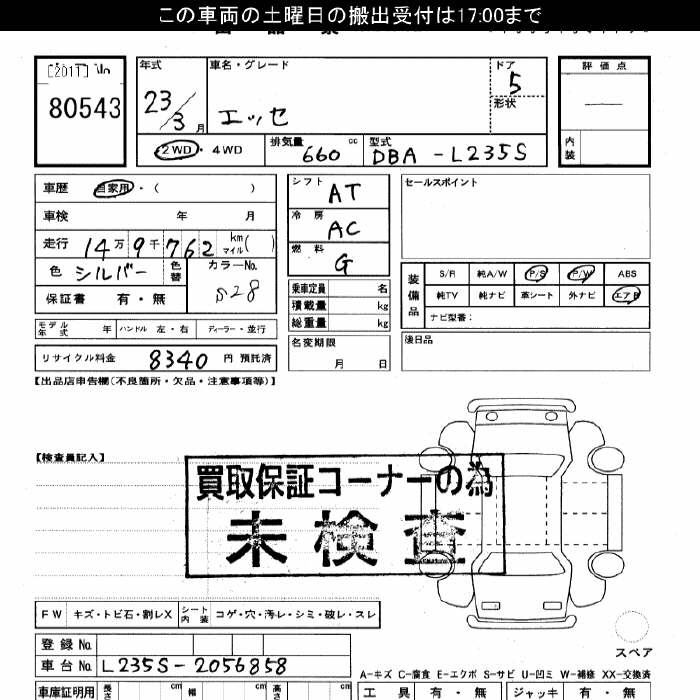 この車両の土曜日の搬出受付は17:00まで
[2017]
80543
年式
23/3月
車名・グレード
エッセ
ドア
5
形状
評価点
内装
2WD・4WD
排気量 660 cc
型式 DBA-L235S
車歴 自家用・( )
車検 年 月
走行 14万9千762 km マイル( )
色 シルバー 色替
カラーNo. S28
保証書 有・無
モデル年式 年 ハンドル 左・右 ディーラー・並行
リサイクル料金 8340 円 預託済
シフト AT
冷房 AC
燃料 G
乗車定員 名
積載量 kg
総重量 kg
名変期限
月 日
セールスポイント
装備品
S/R 純A/W P/S P/W ABS
純TV 純ナビ 革シート 外ナビ エアB
ナビ型番:
後日品
【出品店申告欄(不良箇所・欠品・注意事項等)】
【検査員記入】
買取保証コーナーの為
未検査
FW キズ・トビ石・割レX シート内装 コゲ・穴・汚レ・シミ・破レ・スレ
登録No.
車台No. L235S-2056858
スペア
A-キズ C-腐食 E-エクボ S-サビ U-凹ミ W-補修 XX-交換済
車庫証明用 長さ cm 幅 cm 高さ cm
工具 有・無 ジャッキ 有・無